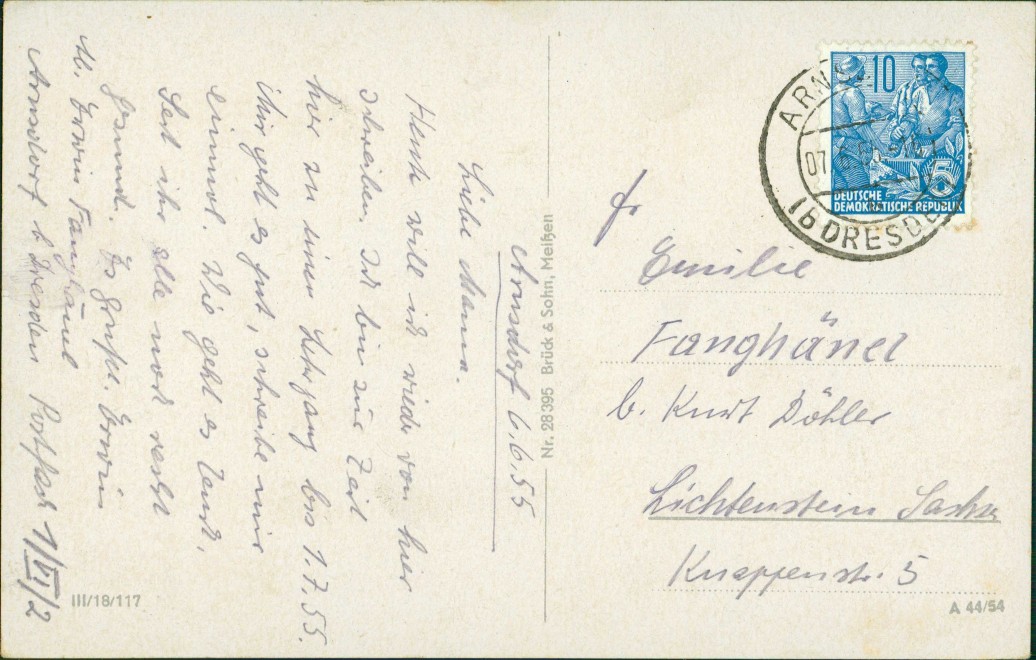 Arnsdorf 6.6.55
Liebe Mama.
Heute will ich wieder von hier
schreiben. Ich bin zur Zeit
hier zu einen Lehrgang bis 1.7.55.
Mir geht es gut, schreibe mir
einmal. Wie geht es Euch,
Seit ihr alle noch recht
gesund. Es grüßt Erwin
Erwin Fanghänel
Arnsdorf b Dresden Postfach 1/VI/2
III/18/117
Nr. 28395 Brück & Sohn, Meißen
10
5
DEUTSCHE
DEMOKRATISCHE REPUBLIK
ARNSD
07
(b DRESDEN
Fr
Emilie
Fanghänel
b. Kurt Döhler
Lichtenstein Sachs.
Knappenstr. 5
A 44/54